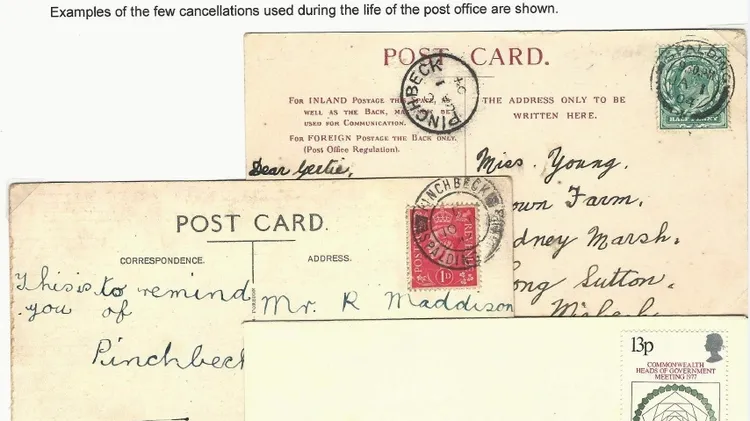 Examples of the few cancellations used during the life of the post office are shown.
POST CARD.
PINCHBECK
SPALDING
04
HALFPENNY
FOR INLAND POSTAGE THIS
WELL AS THE BACK, MA BE
USED FOR COMMUNICATION.
FOR FOREIGN POSTAGE THE BACK ONLY.
(Post Office Regulation).
THE ADDRESS ONLY TO BE
WRITTEN HERE.
Dear Gertie,
Miss. Young.
own Farm,
dney Marsh,
ong Sutton.
POST CARD.
PINCHBECK
SPALDING
POSTAGE
REVENUE
1D
CORRESPONDENCE.
ADDRESS.
This is to remind
you of
Pinchbeck
Mr. R Maddison
13p
COMMONWEALTH
HEADS OF GOVERNMENT
MEETING 1977